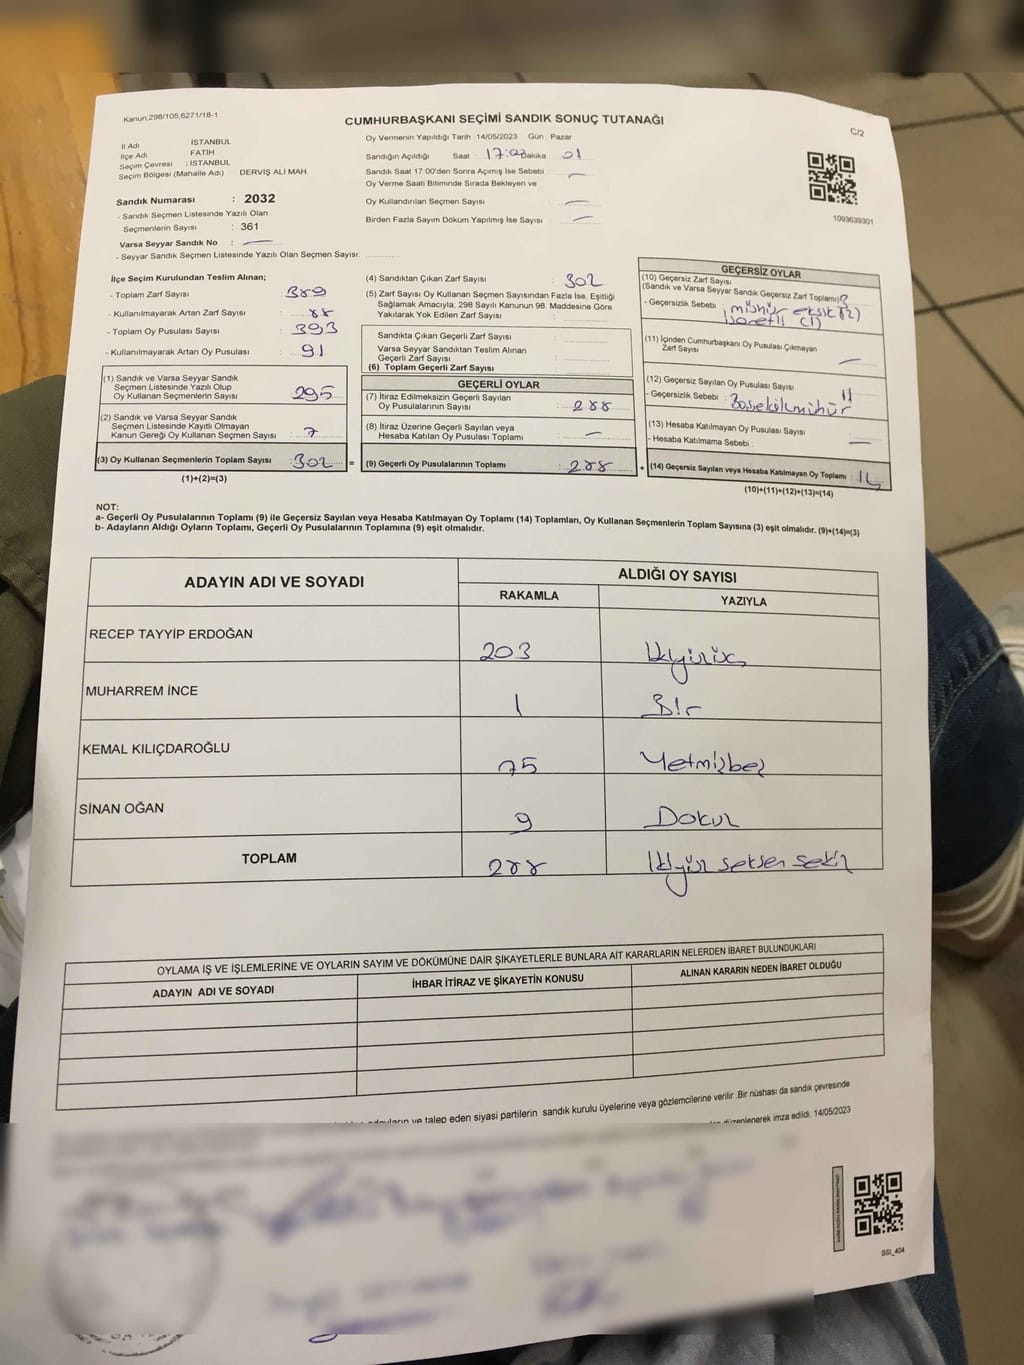 Kanun:298/105,6271/18-1
CUMHURBAŞKANI SEÇİMİ SANDIK SONUÇ TUTANAĞI
C/2
İl Adı İSTANBUL
İlçe Adı FATİH
Seçim Çevresi : İSTANBUL
Seçim Bölgesi (Mahalle Adı) DERVİŞ ALİ MAH.
Sandık Numarası : 2032
- Sandık Seçmen Listesinde Yazılı Olan
Seçmenlerin Sayısı : 361
Varsa Seyyar Sandık No : —
- Seyyar Sandık Seçmen Listesinde Yazılı Olan Seçmen Sayısı:
Oy Vermenin Yapıldığı Tarih : 14/05/2023 Gün : Pazar
Sandığın Açıldığı Saat : 17:02 Dakika : 01
Sandık Saat 17.00'den Sonra Açımış İse Sebebi : —
Oy Verme Saati Bitiminde Sırada Bekleyen ve
Oy Kullandırılan Seçmen Sayısı : —
Birden Fazla Sayım Döküm Yapılmış İse Sayısı : —
1093639301
İlçe Seçim Kurulundan Teslim Alınan;
- Toplam Zarf Sayısı : 389
- Kullanılmayarak Artan Zarf Sayısı : 88
- Toplam Oy Pusulası Sayısı : 393
- Kullanılmayarak Artan Oy Pusulası : 91
(1) Sandık ve Varsa Seyyar Sandık
Seçmen Listesinde Yazılı Olup
Oy Kullanan Seçmenlerin Sayısı : 295
(2) Sandık ve Varsa Seyyar Sandık
Seçmen Listesinde Kayıtlı Olmayan
Kanun Gereği Oy Kullanan Seçmen Sayısı : 7
(3) Oy Kullanan Seçmenlerin Toplam Sayısı : 302 =
(1)+(2)=(3)
(4) Sandıktan Çıkan Zarf Sayısı : 302
(5) Zarf Sayısı Oy Kullanan Seçmen Sayısından Fazla İse, Eşitliği
Sağlamak Amacıyla; 298 Sayılı Kanunun 98. Maddesine Göre
Yakılarak Yok Edilen Zarf Sayısı :
Sandıkta Çıkan Geçerli Zarf Sayısı :
Varsa Seyyar Sandıktan Teslim Alınan
Geçerli Zarf Sayısı :
(6) Toplam Geçerli Zarf Sayısı :
GEÇERLİ OYLAR
(7) İtiraz Edilmeksizin Geçerli Sayılan
Oy Pusulalarının Sayısı : 288
(8) İtiraz Üzerine Geçerli Sayılan veya
Hesaba Katılan Oy Pusulası Toplamı : —
(9) Geçerli Oy Pusulalarının Toplamı : 288 +
GEÇERSİZ OYLAR
(10) Geçersiz Zarf Sayısı
(Sandık ve Varsa Seyyar Sandık Geçersiz Zarf Toplamı) 3
- Geçersizlik Sebebi : mühür eksik (2)
işaretli (1)
(11) İçinden Cumhurbaşkanı Oy Pusulası Çıkmayan
Zarf Sayısı —
(12) Geçersiz Sayılan Oy Pusulası Sayısı : 11
- Geçersizlik Sebebi :
(13) Hesaba Katılmayan Oy Pusulası Sayısı
- Hesaba Katılmama Sebebi : —
(14) Geçersiz Sayılan veya Hesaba Katılmayan Oy Toplamı : 14
(10)+(11)+(12)+(13)=(14)
NOT:
a- Geçerli Oy Pusulalarının Toplamı (9) ile Geçersiz Sayılan veya Hesaba Katılmayan Oy Toplamı (14) Toplamları, Oy Kullanan Seçmenlerin Toplam Sayısına (3) eşit olmalıdır. (9)+(14)=(3)
b- Adayların Aldığı Oyların Toplamı, Geçerli Oy Pusulalarının Toplamına (9) eşit olmalıdır.
ADAYIN ADI VE SOYADI ALDIĞI OY SAYISI
RAKAMLA YAZIYLA
RECEP TAYYİP ERDOĞAN 203 İkiyüzüç
MUHARREM İNCE 1 Bir
KEMAL KILIÇDAROĞLU 75 Yetmişbeş
SİNAN OĞAN 9 Dokuz
TOPLAM 288 İkiyüz seksen sekiz
OYLAMA İŞ VE İŞLEMLERİNE VE OYLARIN SAYIM VE DÖKÜMÜNE DAİR ŞİKAYETLERLE BUNLARA AİT KARARLARIN NELERDEN İBARET BULUNDUKLARI
ADAYIN ADI VE SOYADI İHBAR İTİRAZ VE ŞİKAYETİN KONUSU ALINAN KARARIN NEDEN İBARET OLDUĞU
ve talep eden siyasi partilerin sandık kurulu üyelerine veya gözlemcilerine verilir. Bir nüshası da sandık çevresinde
düzenlenerek imza edildi. 14/05/2023
SSI_404